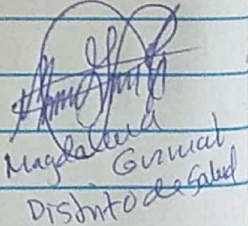 Magdalena
Guzmal
Distrito de Salud